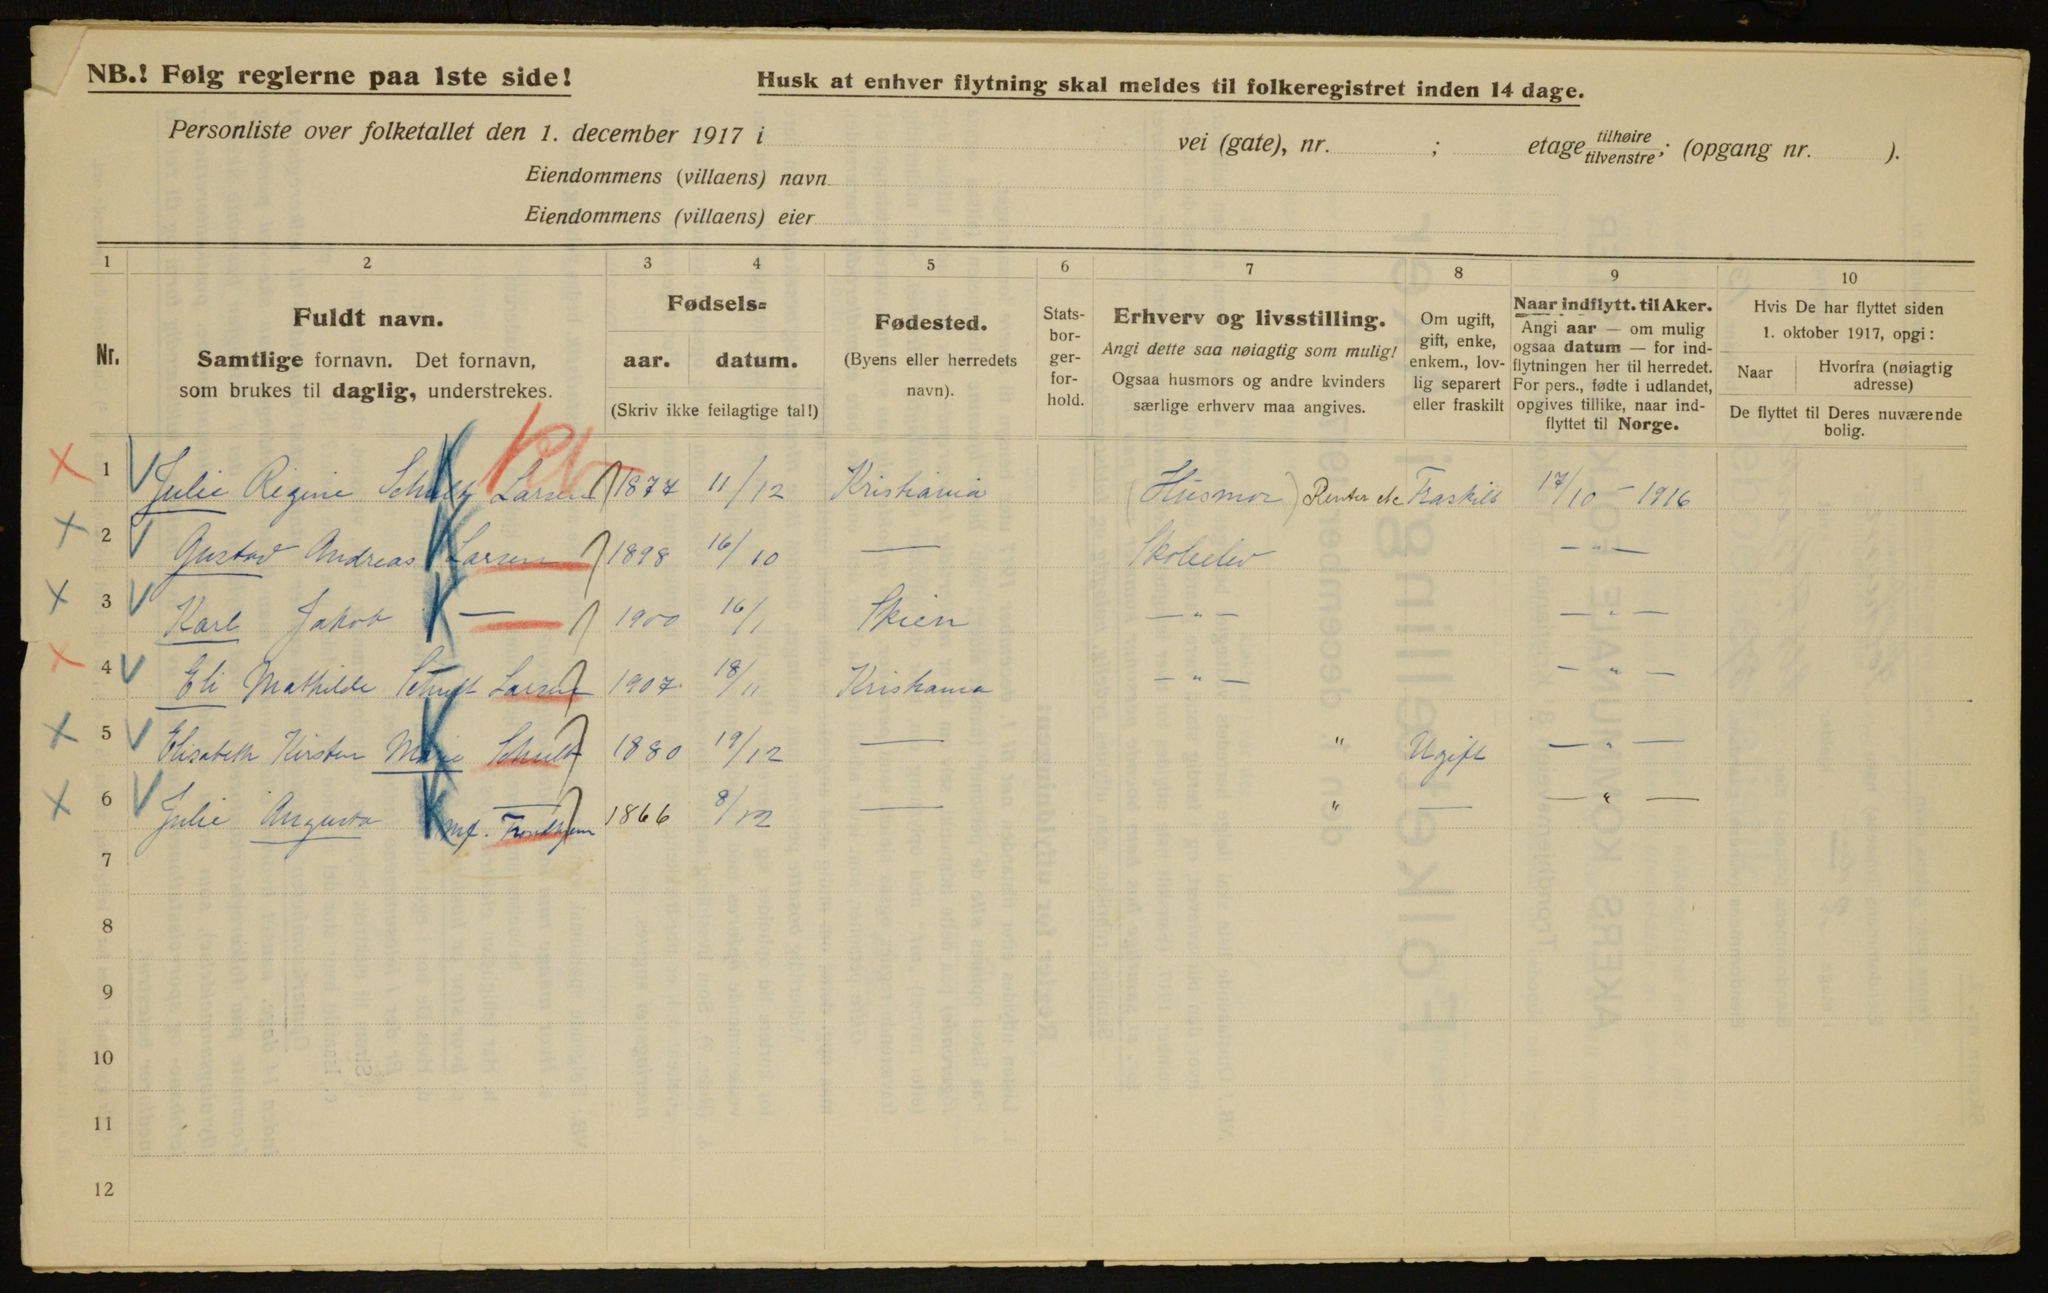 NB.! Følg reglerne paa 1ste side!
Husk at enhver flytning skal meldes til folkeregistret inden 14 dage.
Personliste over folketallet den 1. december 1917 i vei (gate), nr. ; etage tilhøire tilvenstre; (opgang nr. ).
Eiendommens (villaens) navn
Eiendommens (villaens) eier
1 2 3 4 5 6 7 8 9 10
Nr.
Fuldt navn.
Samtlige fornavn. Det fornavn,
som brukes til daglig, understrekes.
Fødsels=
aar. datum.
(Skriv ikke feilagtige tal!)
Fødested.
(Byens eller herredets
navn).
Stats-
bor-
ger-
for-
hold.
Erhverv og livsstilling.
Angi dette saa nøiagtig som mulig!
Ogsaa husmors og andre kvinders
særlige erhverv maa angives.
Om ugift,
gift, enke,
enkem., lov-
lig separert
eller fraskilt
Naar indflytt. til Aker.
Angi aar — om mulig
ogsaa datum — for ind-
flytningen her til herredet.
For pers., fødte i udlandet,
opgives tillike, naar ind-
flyttet til Norge.
Hvis De har flyttet siden
1. oktober 1917, opgi:
Naar
Hvorfra (nøiagtig
adresse)
De flyttet til Deres nuværende
bolig.
1 Julie Regine Schultz Larsen 1877 11/12 Kristiania (Husmor) Renter etc Fraskilt 17/10 - 1916
2 Gustav Andreas Larsen 1898 16/10 — Skoleelev — " —
3 Karl Jakob — 1900 16/1 Skien — " — — " —
4 Eli Mathilde Schult Larsen 1907 18/11 Kristiania — " — — " —
5 Elisabeth Kirsten Marie Schult 1880 19/12 — " Ugift — " —
6 Julie Augusta — 1866 8/12 — " — — " —
mf. Trondhjem
7
8
9
10
11
12